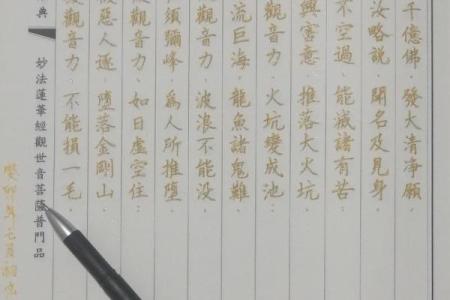 千億佛．發大清淨願．
汝略說．聞名及見身．
不空過．能滅諸有苦．
興害意．推落大火坑．
觀音力．火坑變成池．
流巨海．龍魚諸鬼難．
觀音力．波浪不能沒．
須彌峰．為人所推墮．
觀音力．如日虛空住．
惡人逐．墮落金剛山．
觀音力．不能損一毛．
典
妙法蓮華經觀世音菩薩普門品
癸卯年七月